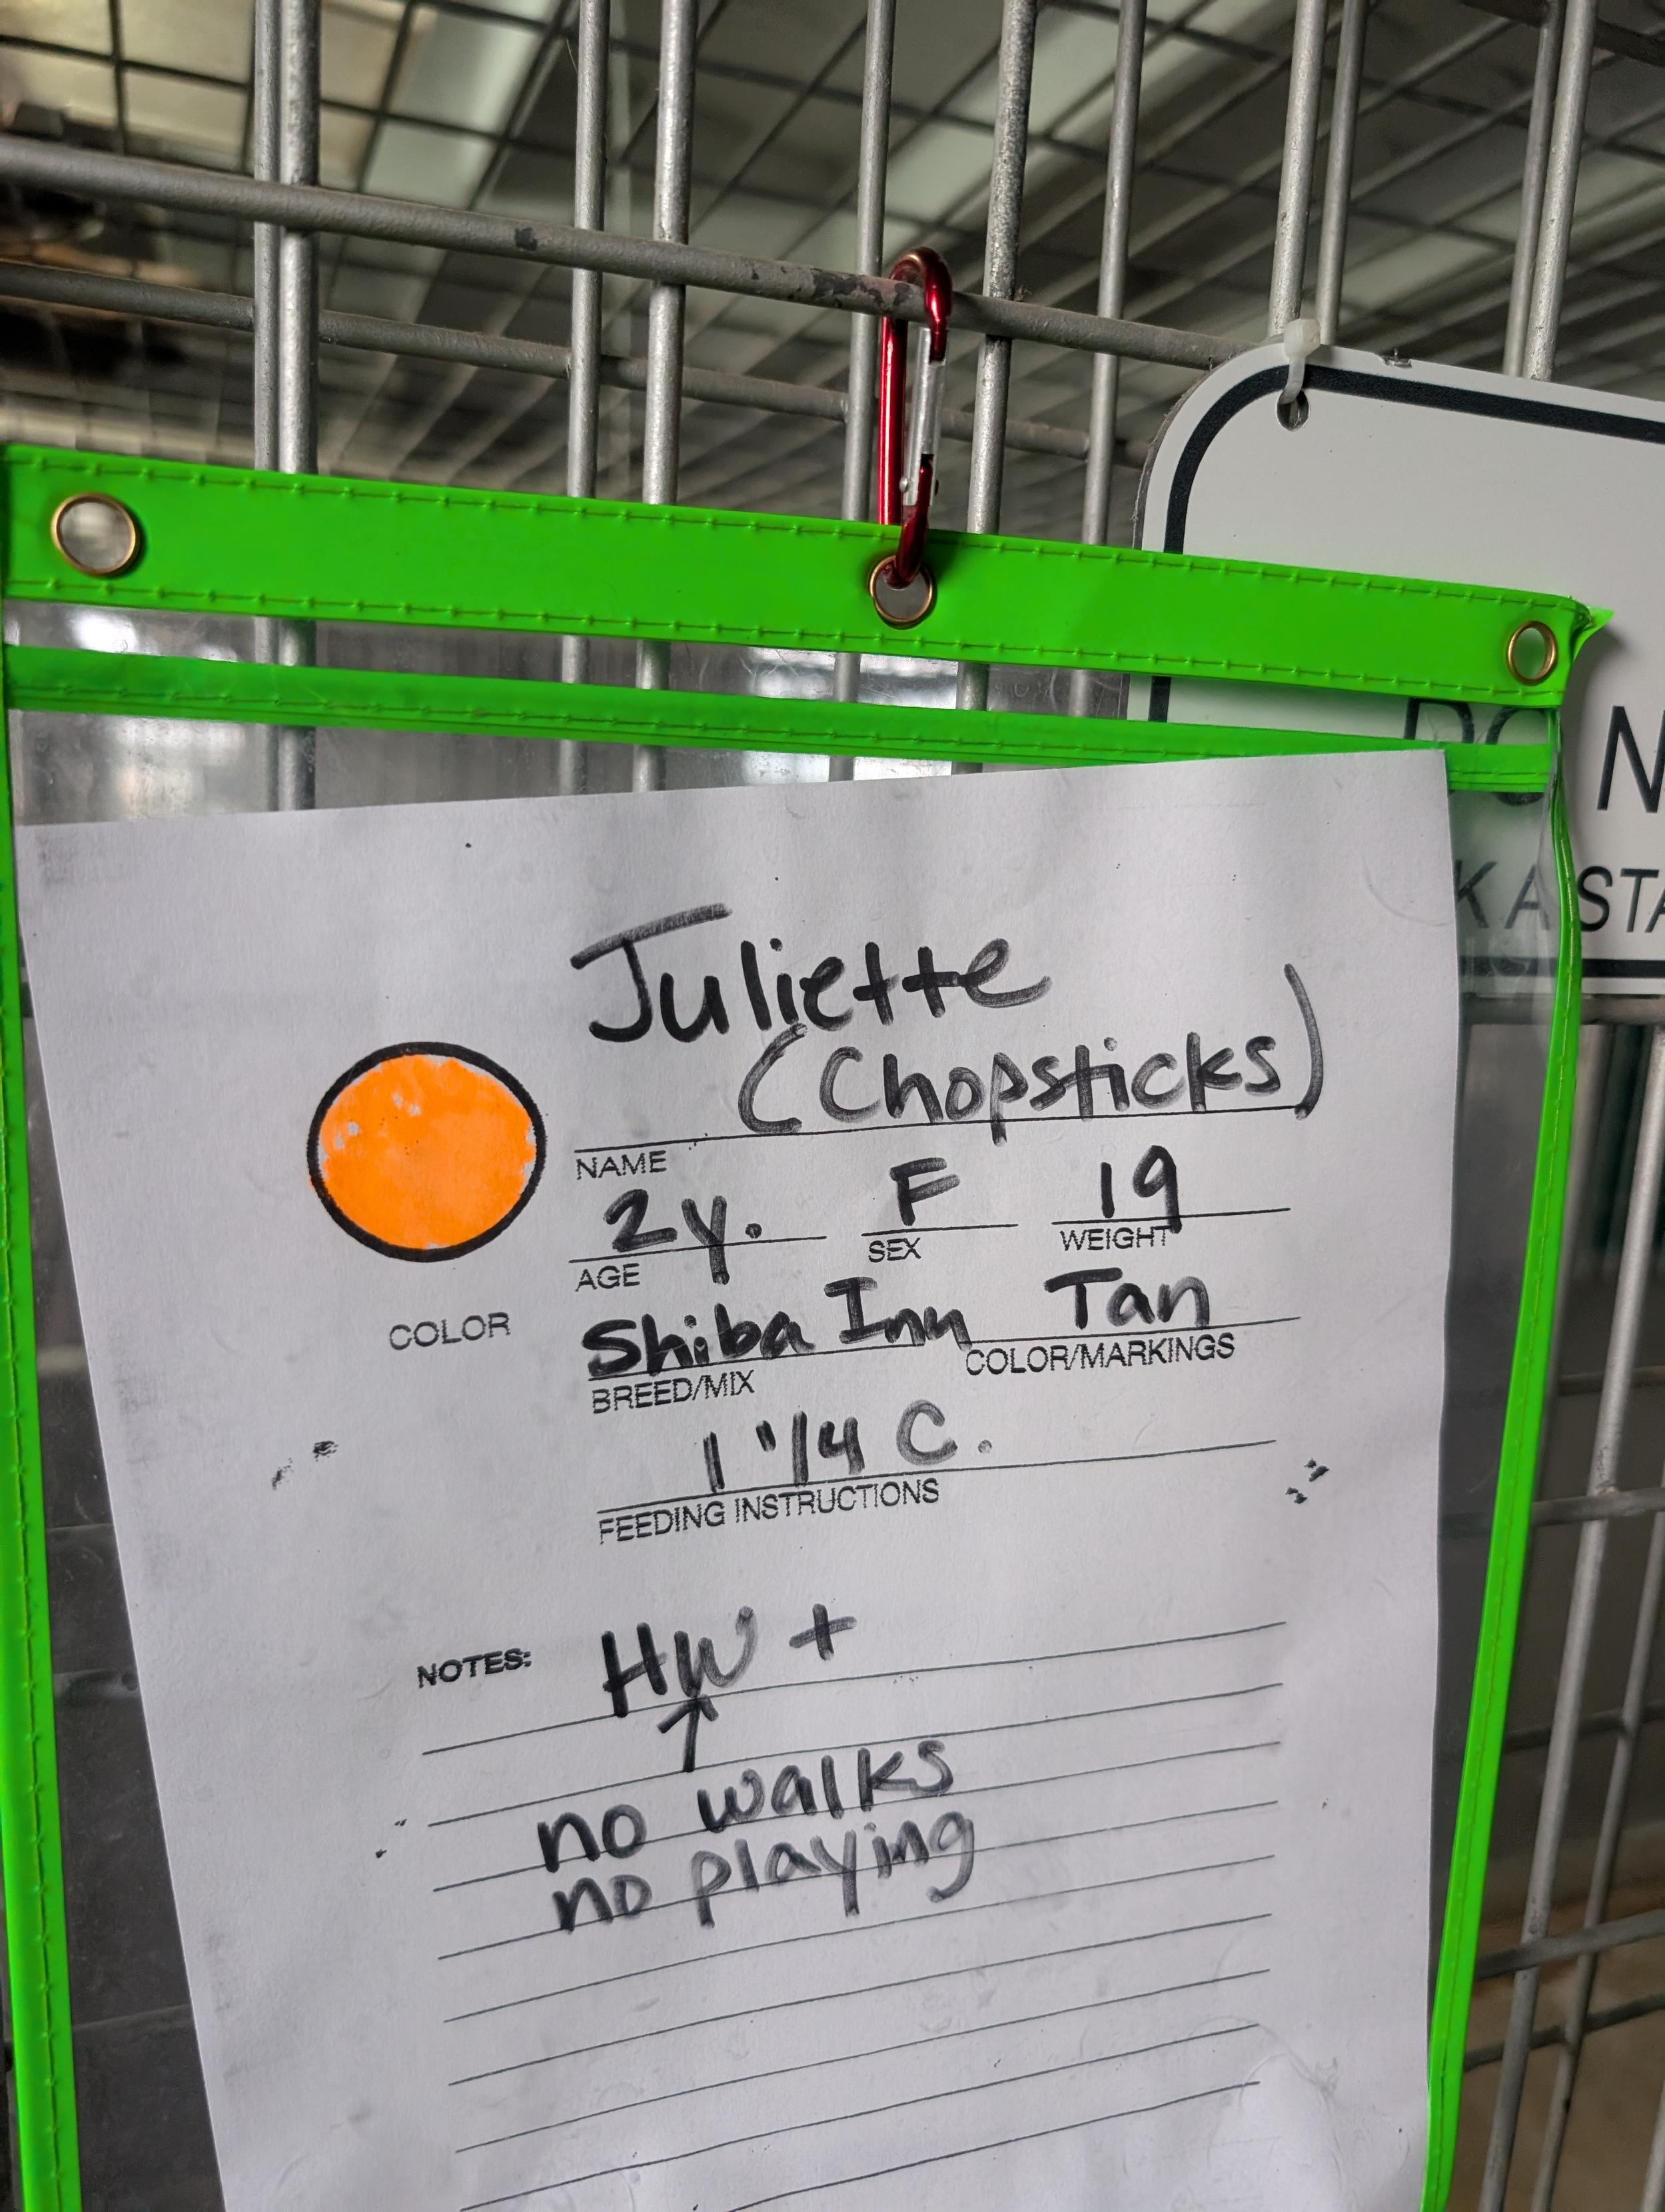 DO N
KA STA
Juliette
(Chopsticks)
NAME
2y. F 19
AGE SEX WEIGHT
COLOR
Shiba Inu Tan
BREED/MIX COLOR/MARKINGS
1 1/4 C.
FEEDING INSTRUCTIONS
NOTES: HW +
↑
no walks
no playing